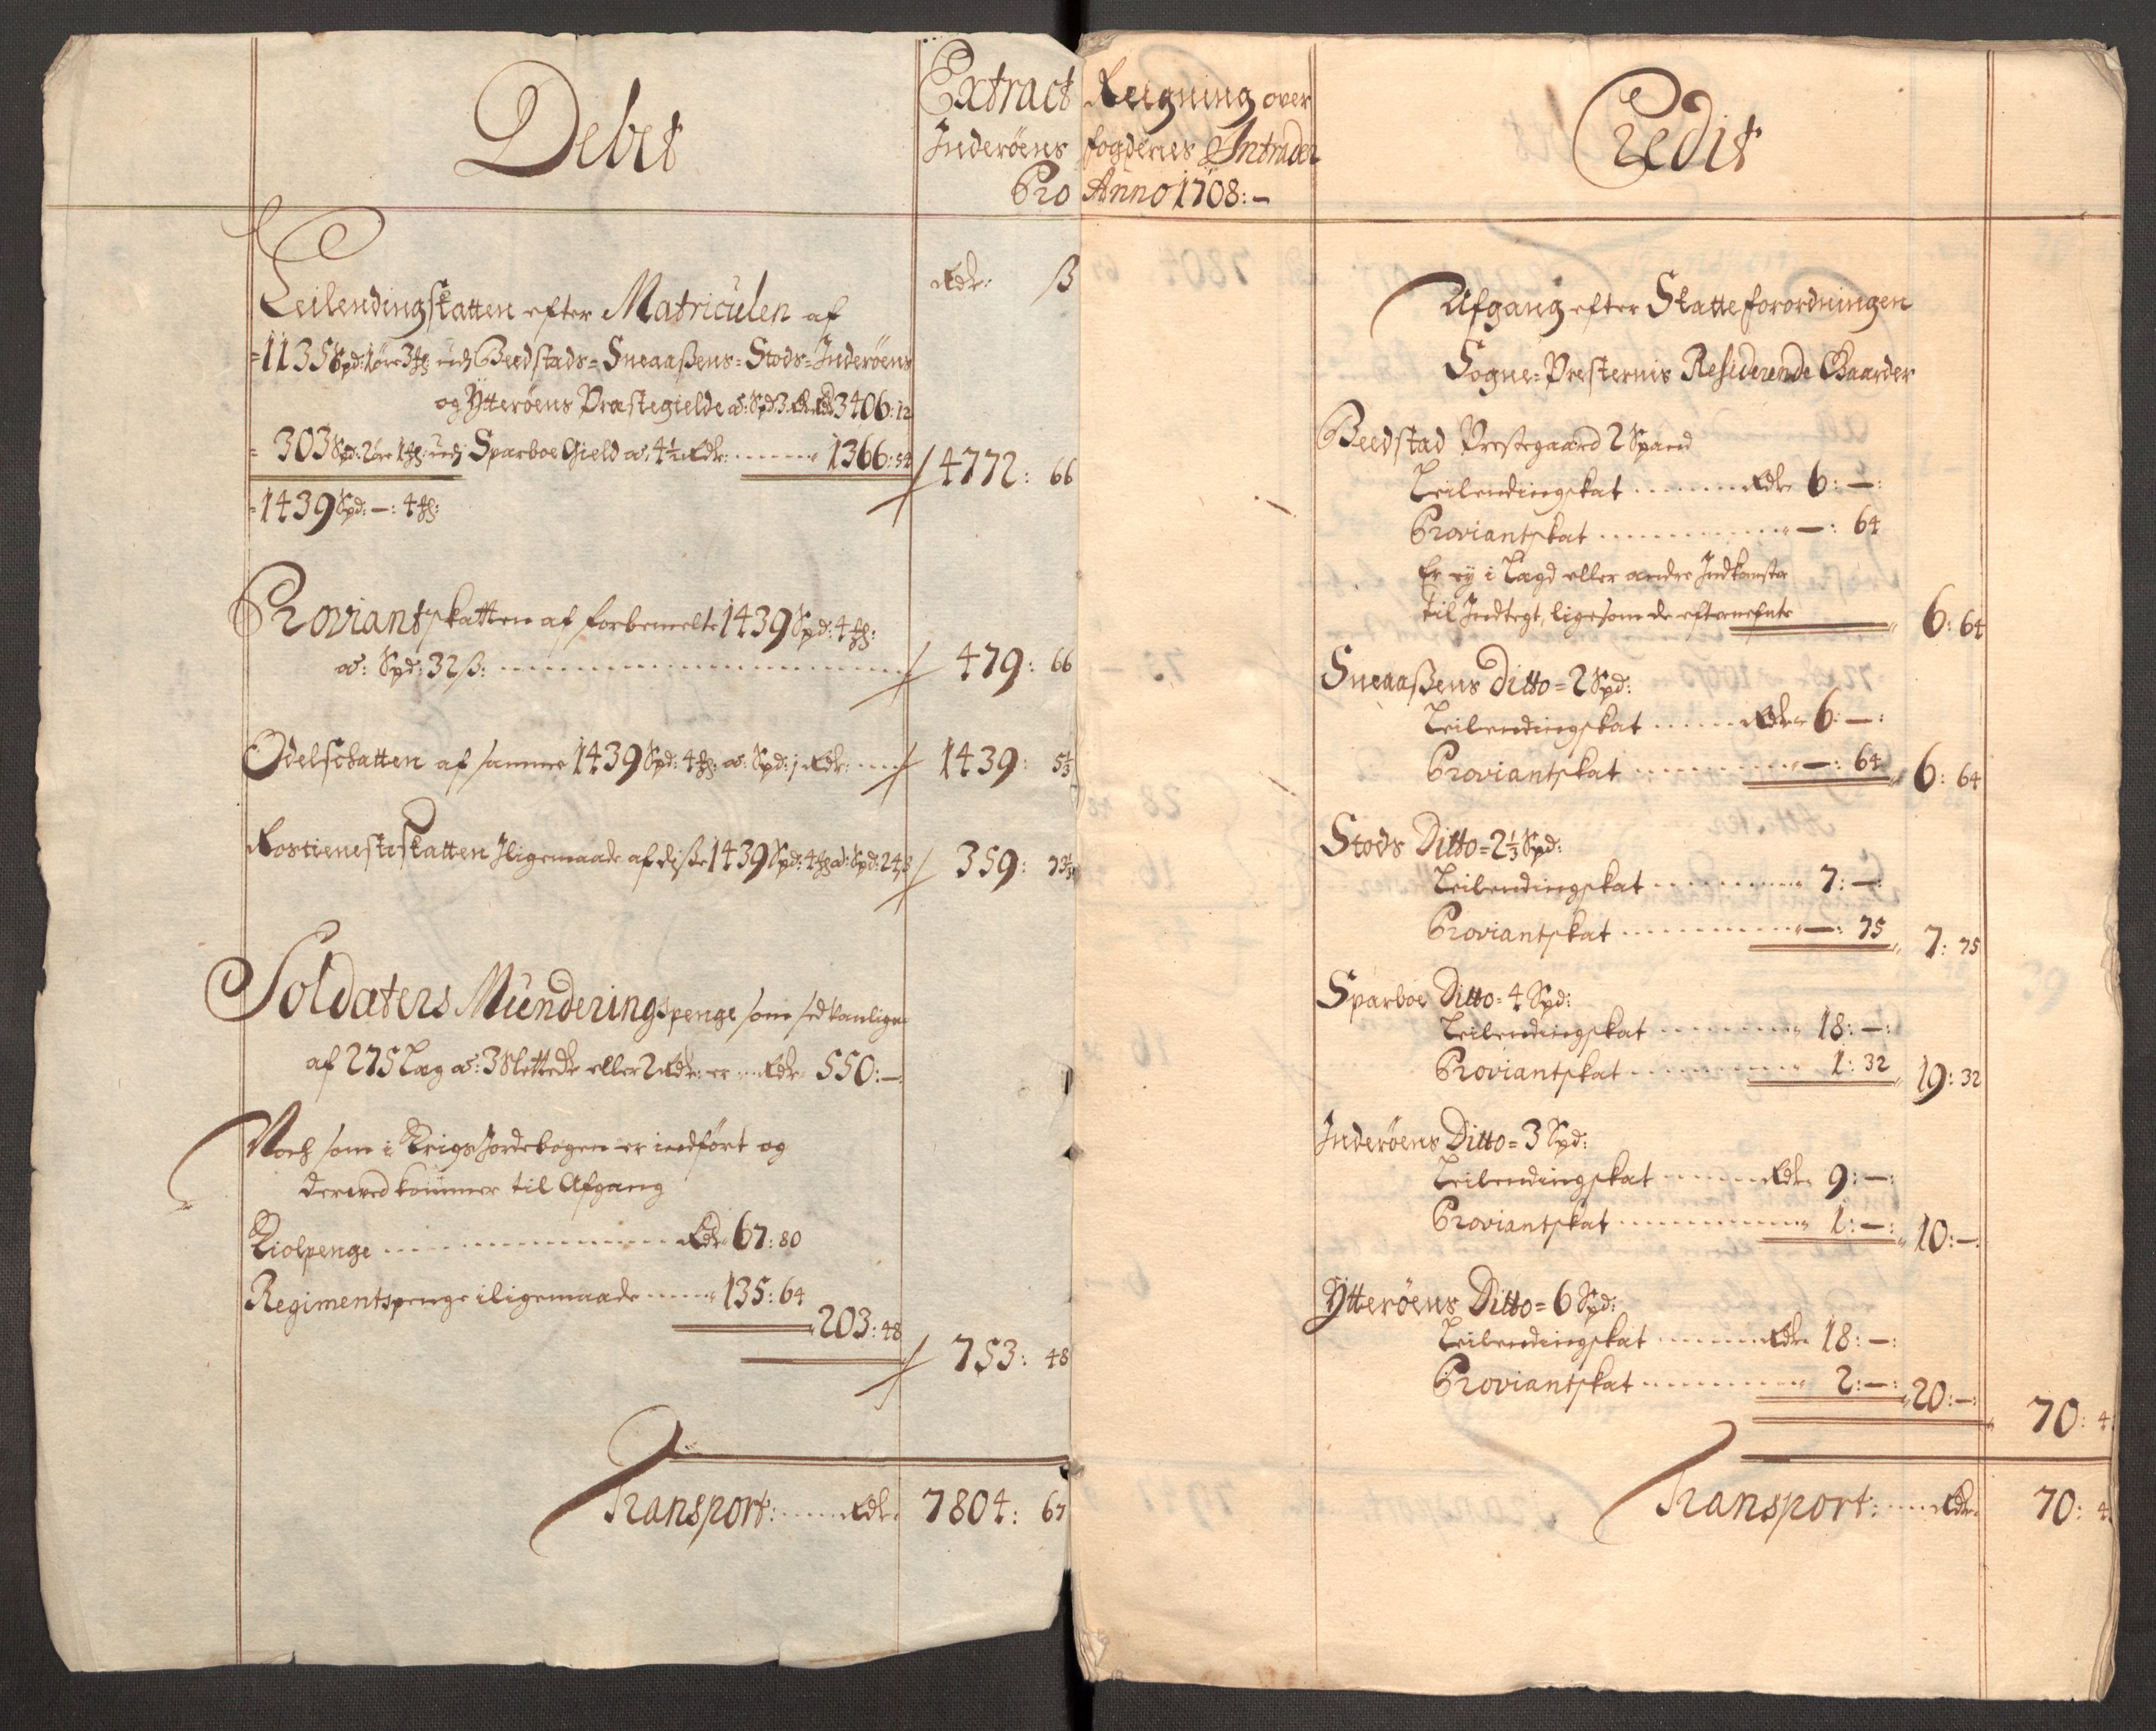 Debet
Extract
Inderøens
Pro
Rdr: ß
Leilendingskatten efter Matriculen af
=1135 Spd: 1øre 3 udj Beedstads= Sneaaßens= Stods= Inderøens
og Ytterøens Præstegielde a: Spd: 3 Rdr 3406: 12
= 303 Spd: 2øre 1 udj Sparboe Gield a. 4½ Rdr: 1366: 54 4772: 66
=1439 Spd: –: 4
Proviantskatten af forbemelte 1439 Spd: 4
a: Spd: 32 ß: 479: 66
Odelschatten af samme 1439 Spd: 4 a: Spd: 1 Rdr: 1439: 5⅓
Rostienesteskatten Iligemaade af diße 1439 Spd: 4 a: Spd: 24 ß 359: 73⅓
Soldaters Munderingspenge som sedvanligen
af 275 Læg a: 3 Slettedr eller 2 Rdr: er Rdr 550: –
Noch som i Krigs Jordebogen er indført og
derimod kommer til Afgang
Kiolpenge Rdr 67: 80
Regimentspenge iligemaade 135: 64
203: 48
753: 48
Transport: Rdr. 7804: 67
Reigning over
fogderies Intrader
Anno 1708: –
Credit
Afgang efter Skatteforordningen
Sogne= Presternis Residerende Gaarder
Beedstad Prestegaard 2 Spand
Leilendingskat Rdr 6: –:
Proviantskat –: 64
Er ey i Lægd eller andre Indkomster
til Indtegt, ligesom de efternefnte 6: 64
Sneaaßens Ditto= 2 Spd:
Leilendingskat Rdr 6: –:
Proviantskat –: 64 6: 64
Stods Ditto= 2⅓ Spd:
Leilendingskat 7: –:
Proviantskat –: 75 7: 75
Sparboe Ditto= 4 Spd:
Leilendingskat 18: –:
Proviantskat 1: 32 19: 32
Inderøens Ditto= 3 Spd:
Leilendingskat Rdr 9: –:
Proviantskat 1: –: 10: –:
Ytterøens Ditto= 6 Spd:
Leilendingskat Rdr 18: –:
Proviantskat 2: –: 20: –:
70: 4
Transport: Rdr. 70: 4